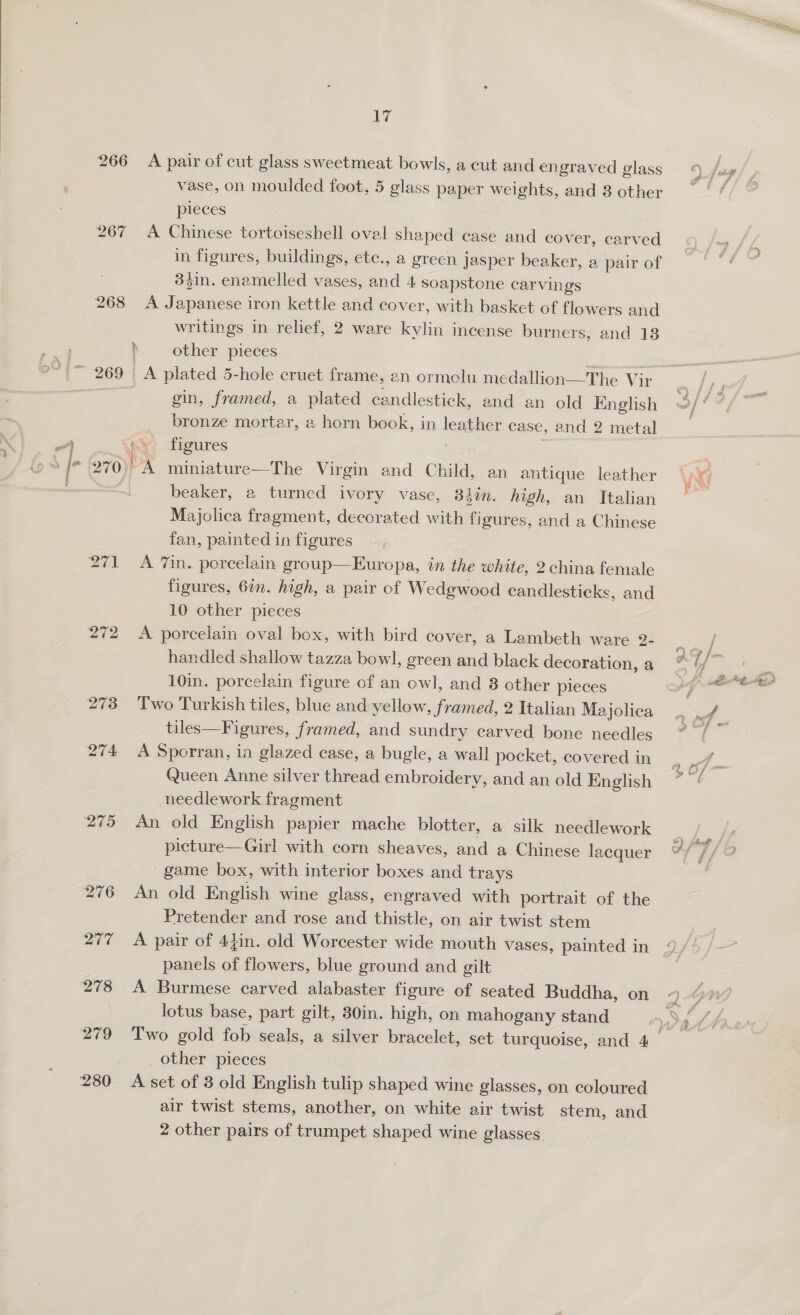 17
266 A pair of cut glass sweetmeat bowls, a cut and engraved glass
vase, on moulded foot, 5 glass paper weights, and 3 other
pieces
267 A Chinese tortoiseshell oval shaped case and cover, carved
in figures, buildings, etc., a green jasper beaker, a pair of
3½in. enamelled vases, and 4 soapstone carvings
268 A Japanese iron kettle and cover, with basket of flowers and
writings in relief, 2 ware kylin incense burners, and 13
other pieces
269 A plated 5-hole cruet frame, an ormolu medallion—The Vir
gin, framed, a plated candlestick, and an old English
bronze mortar, a horn book, in leather case, and 2 metal
figures
270 A miniature—The Virgin and Child, an antique leather
beaker, a turned ivory vase, 3½in. high, an Italian
Majolica fragment, decorated with figures, and a Chinese
fan, painted in figures
271 A 7in. porcelain group—Europa, in the white, 2 china female
figures, 6in. high, a pair of Wedgwood candlesticks, and
10 other pieces
272 A porcelain oval box, with bird cover, a Lambeth ware 2-
handled shallow tazza bowl, green and black decoration, a
10in. porcelain figure of an owl, and 3 other pieces
273 Two Turkish tiles, blue and yellow, framed, 2 Italian Majolica
tiles—Figures, framed, and sundry carved bone needles
274 A Sporran, in glazed case, a bugle, a wall pocket, covered in
Queen Anne silver thread embroidery, and an old English
needlework fragment
275 An old English papier mache blotter, a silk needlework
picture—Girl with corn sheaves, and a Chinese lacquer
game box, with interior boxes and trays
276 An old English wine glass, engraved with portrait of the
Pretender and rose and thistle, on air twist stem
277 A pair of 4¼in. old Worcester wide mouth vases, painted in
panels of flowers, blue ground and gilt
278 A Burmese carved alabaster figure of seated Buddha, on
lotus base, part gilt, 30in. high, on mahogany stand
279 Two gold fob seals, a silver bracelet, set turquoise, and 4
other pieces
280 A set of 3 old English tulip shaped wine glasses, on coloured
air twist stems, another, on white air twist stem, and
2 other pairs of trumpet shaped wine glasses